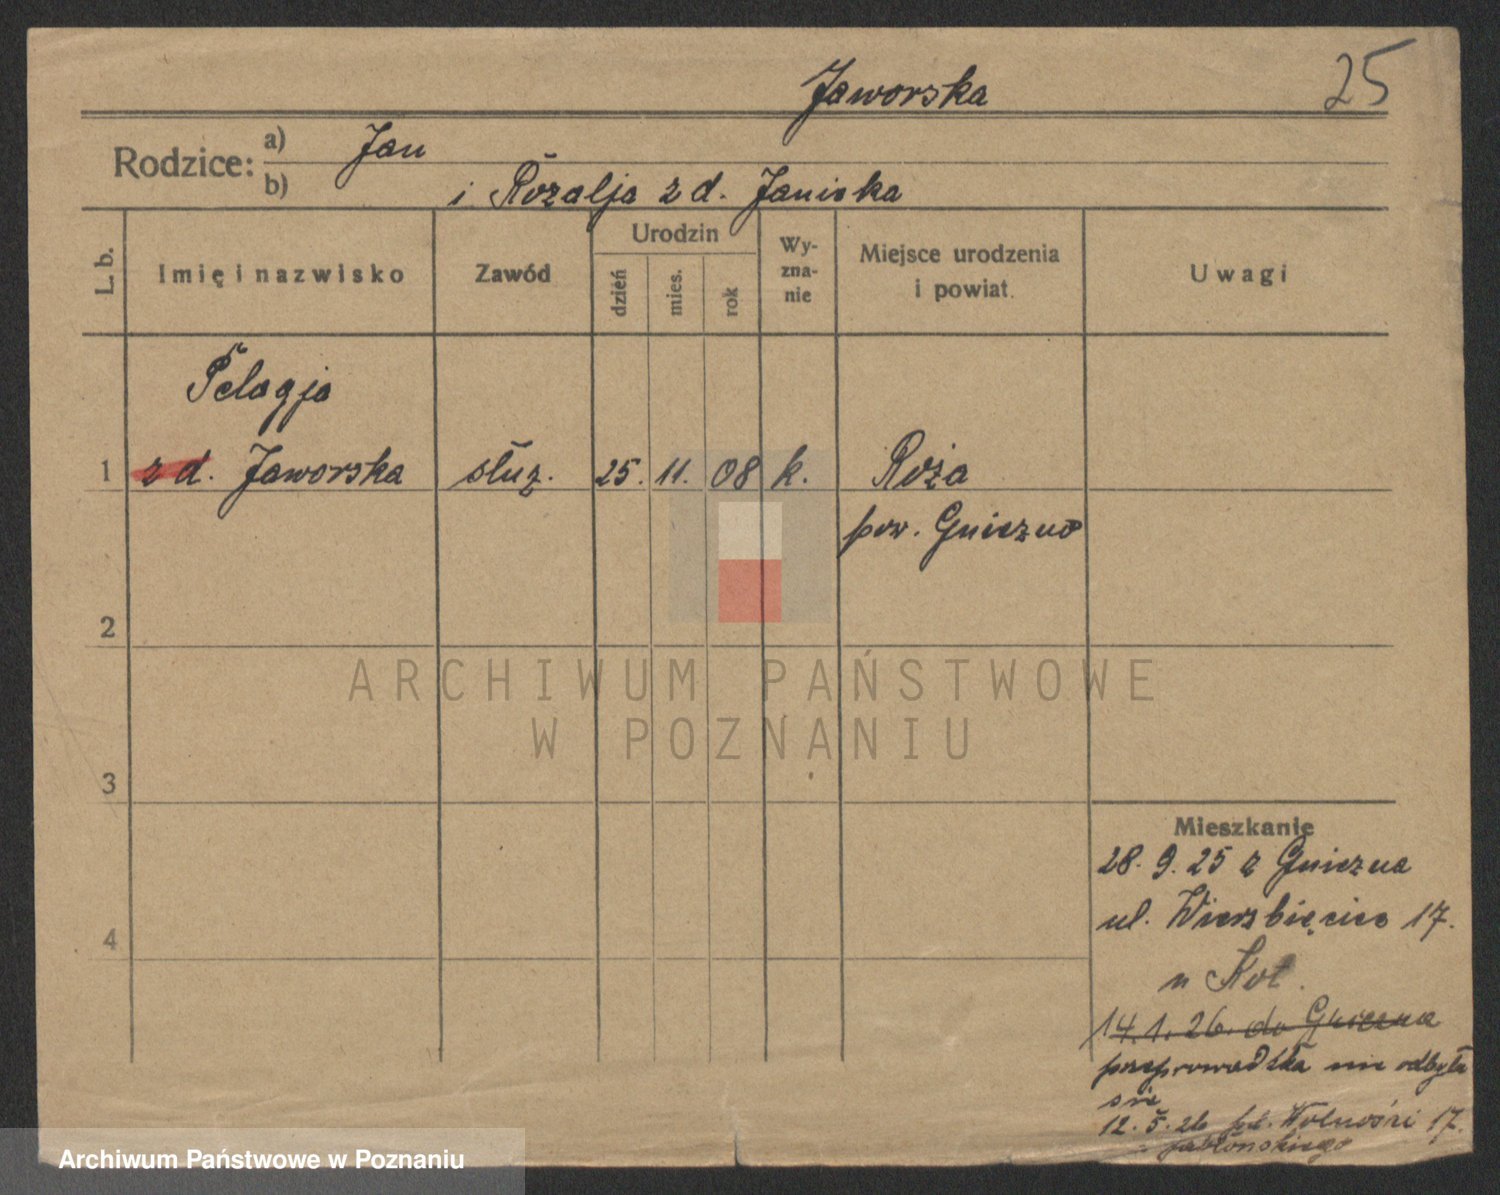 Jaworska
25
Rodzice:
a) Jan
b) i Rozalja z d. Janicka
L. b.
Imię i nazwisko
Zawód
Urodzin
dzień
mies.
rok
Wy-
zna-
nie
Miejsce urodzenia
i powiat.
Uwagi
Pelagja
1 z d. Jaworska służ. 25. 11. 08 k. Roża
pow. Gniezno
2
3
4
ARCHIWUM PAŃSTWOWE
W POZNANIU
Mieszkanie
28. 9. 25 z Gniezna
ul. Wierzbięcice 17.
u Kot.
14. 1. 26. do Gniezna
przeprowadzka nie odbyła
się
12. 5. 26 pl. Wolności 17.
Jabłońskiego
Archiwum Państwowe w Poznaniu